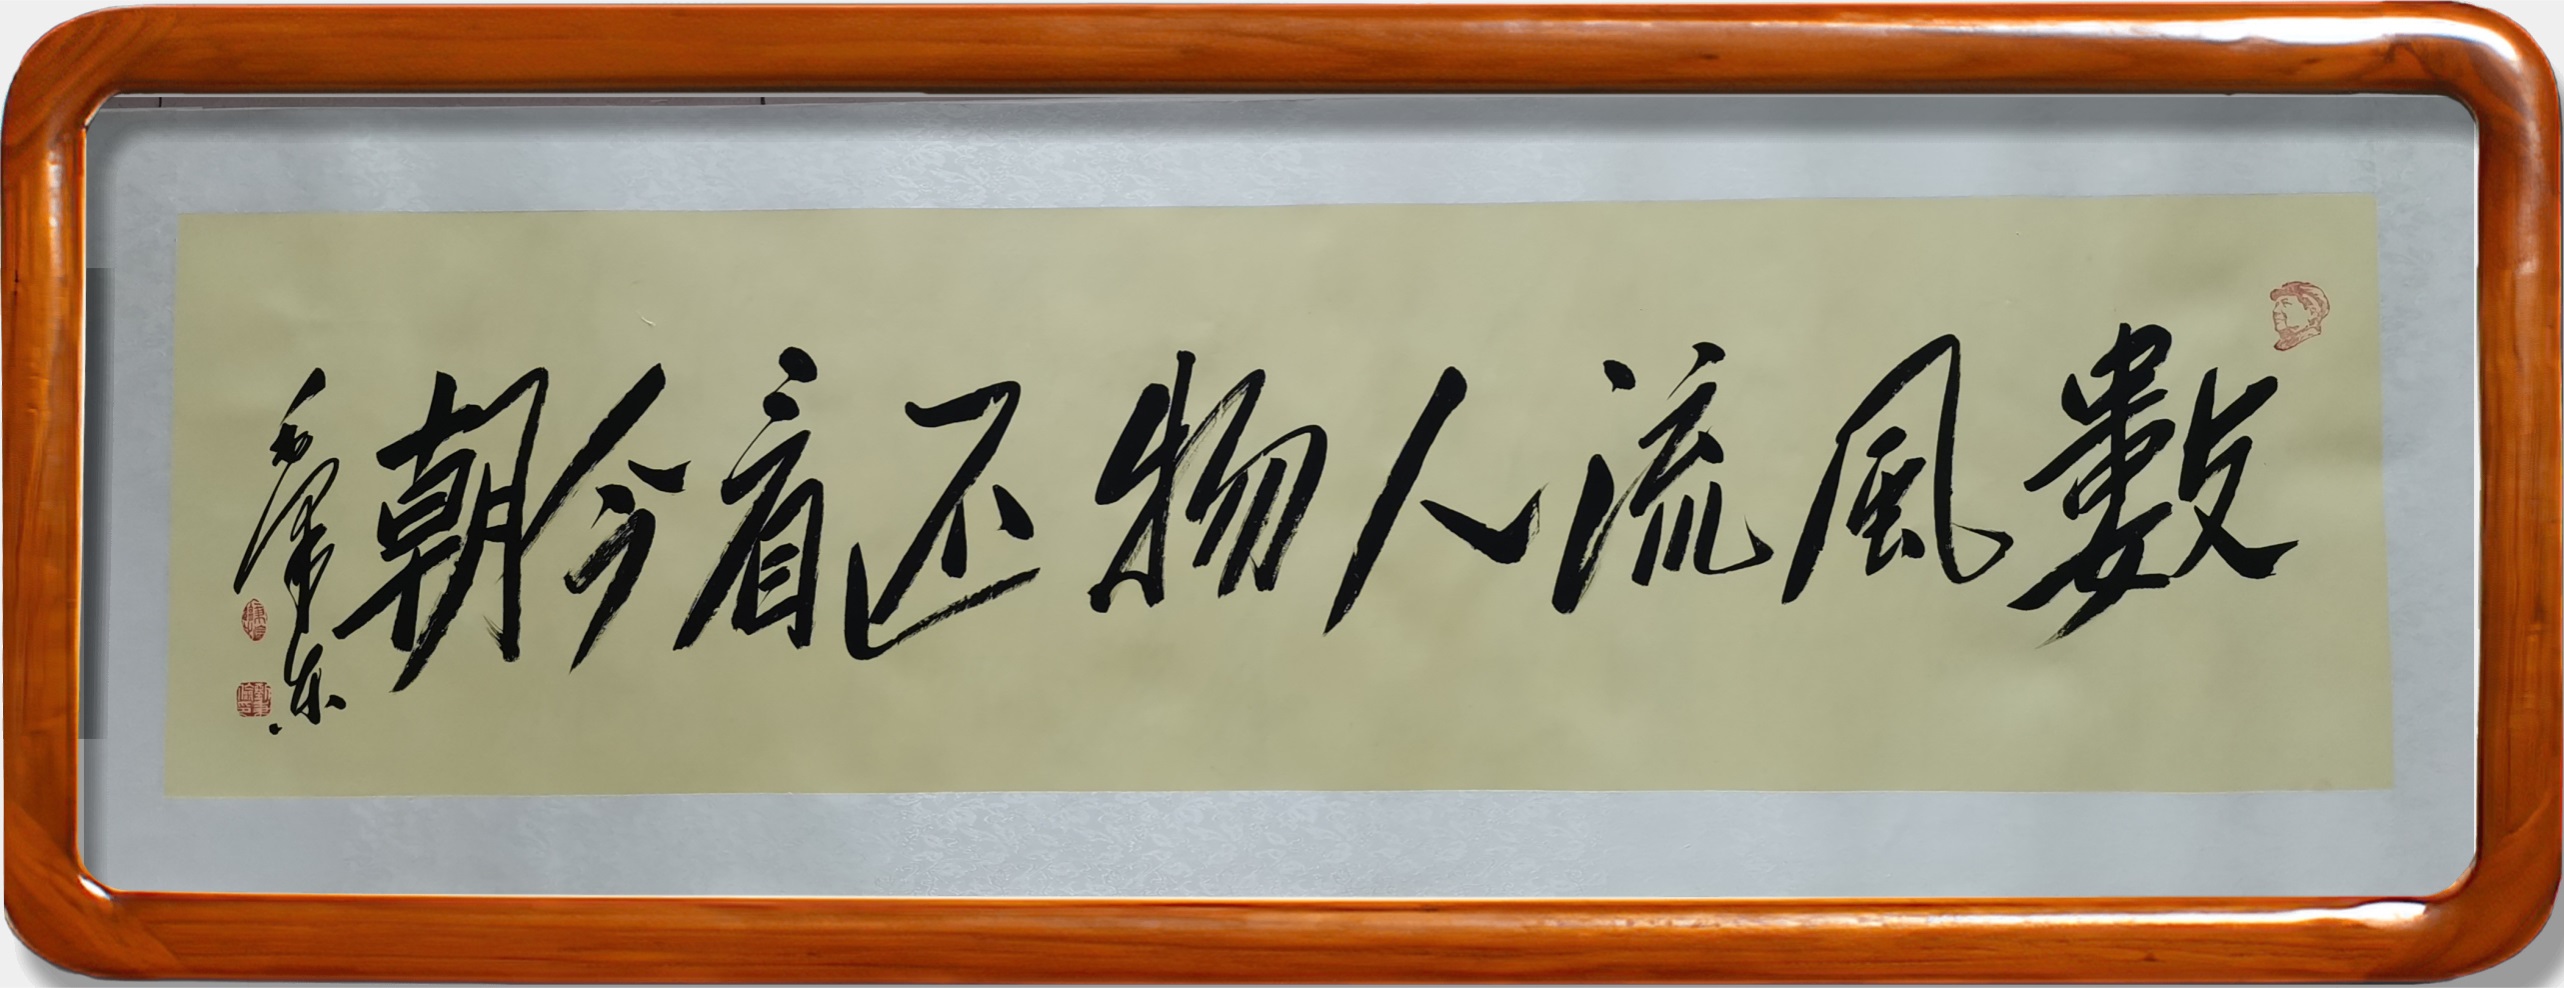 數風流人物还看今朝
毛澤东